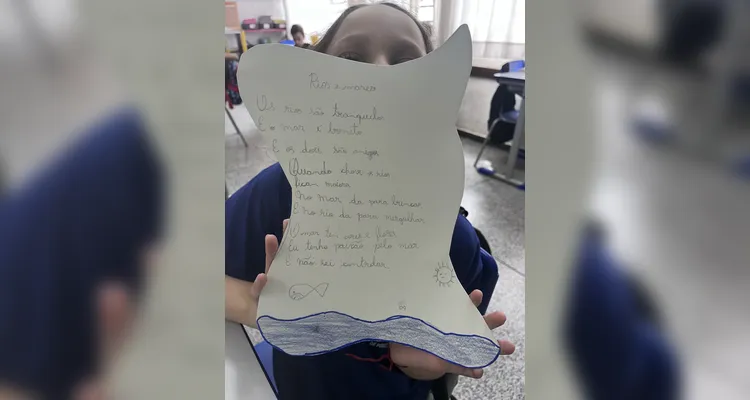 Rios e mares
Os rios são tranquilo
E o mar é bonito
E os dois são
Quando chove o rio
ficam maiors
No mar da para brincar
E no rio da para mergulhar
O mar tem
Eu tenho paixão pelo mar
E não sei controlar